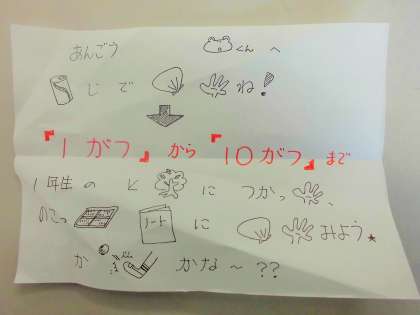 あんごう くん へ
じ で ね!
『1がつ』から『10がつ』まで
1年生の と に つかって、
のこっ ノート に みよう
か かな〜??